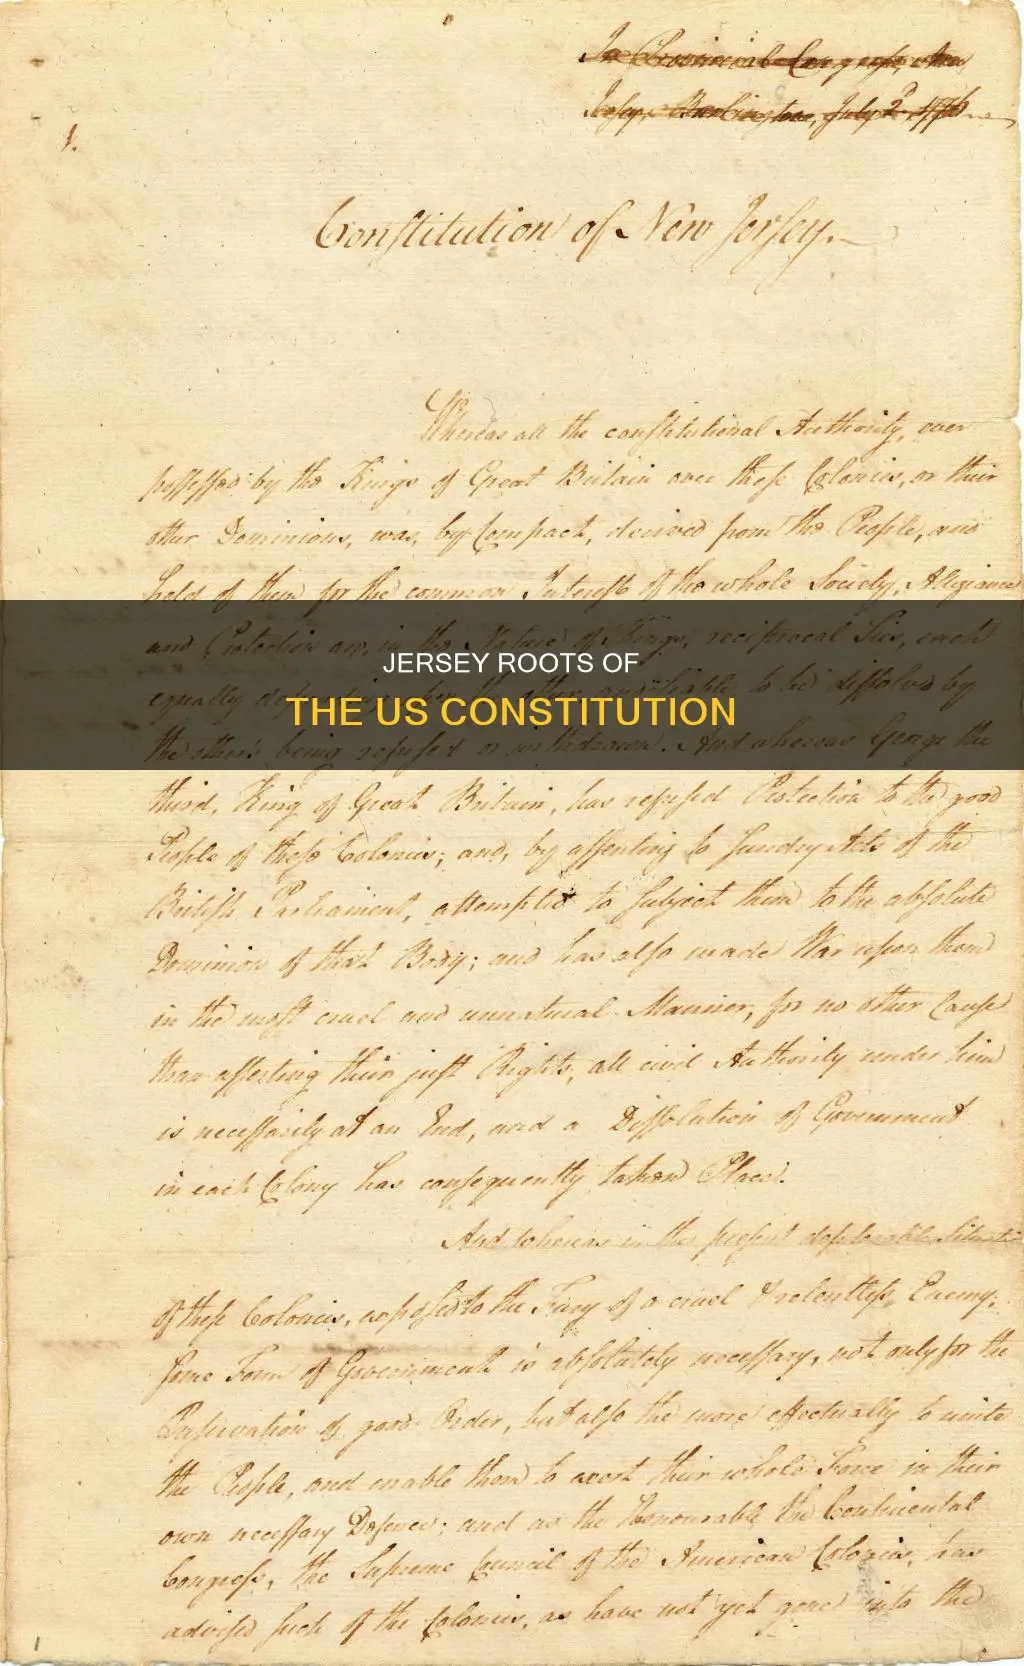 In Provincial Congress, New
Jersey, Burlington, July 2d 1776
1.
Constitution of New Jersey.
Whereas all the constitutional Authority, ever
possessed by the Kings of Great Britain over these Colonies, or their
other Dominions, was, by Compact, derived from the People, and
held of them for the common Interest of the whole Society, Allegiance
and Protection are, in the Nature of Things, reciprocal Ties, each
JERSEY ROOTS OF
equally depending upon the other, and liable to be dissolved by
THE US CONSTITUTION
the other's being refused or withdrawn. And whereas George the
third, King of Great Britain, has refused Protection to the good
People of these Colonies; and, by assenting to sundry Acts of the
British Parliament, attempted to subject them to the absolute
Dominion of that Body; and has also made War upon them
in the most cruel and unnatural Manner, for no other Cause
than asserting their just Rights, all civil Authority under him
is necessarily at an End, and a Dissolution of Government
in each Colony has consequently taken Place.
And whereas in the present deplorable Situation
of these Colonies, exposed to the Fury of a cruel & relentless Enemy,
some Form of Government is absolutely necessary, not only for the
Preservation of good Order, but also the more effectually to unite
the People, and enable them to exert their whole Force in their
own necessary Defence; and as the Honourable the Continental
Congress, the Supreme Council of the American Colonies, has
advised such of the Colonies, as have not yet gone into the